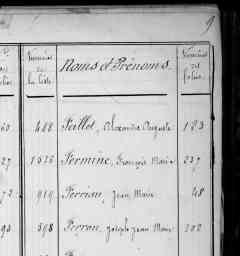 9
Numéros de la liste
Noms et Prénoms.
Numéros du folio
60. 488 Peillot, Alexandre Auguste 183
27 1326 Permine, François Marie 237
72. 919 Perrian, Jean Marie 48
93 598 Perron, Joseph Jean Marie 202